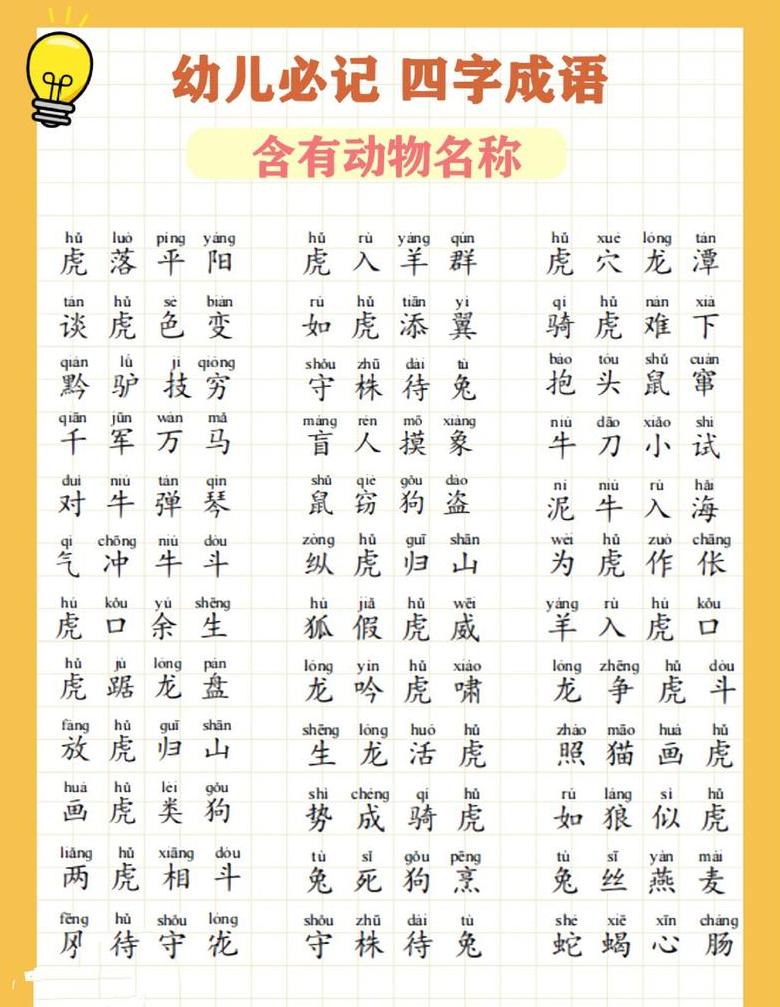 幼儿必记 四字成语
含有动物名称
hǔ luò píng yáng hǔ rù yáng qún hǔ xué lóng tán
虎落平阳 虎入羊群 虎穴龙潭
tán hǔ sè biàn rú hǔ tiān yì qí hǔ nán xià
谈虎色变 如虎添翼 骑虎难下
qián lǘ jì qióng shǒu zhū dài tù bào tóu shǔ cuàn
黔驴技穷 守株待兔 抱头鼠窜
qiān jūn wàn mǎ máng rén mō xiàng niú dāo xiǎo shì
千军万马 盲人摸象 牛刀小试
duì niú tán qín shǔ qiè gǒu dào ní niú rù hǎi
对牛弹琴 鼠窃狗盗 泥牛入海
qì chōng niú dǒu zòng hǔ guī shān wèi hǔ zuò chāng
气冲牛斗 纵虎归山 为虎作伥
hǔ kǒu yú shēng hú jiǎ hǔ wēi yáng rù hǔ kǒu
虎口余生 狐假虎威 羊入虎口
hǔ jù lóng pán lóng yín hǔ xiào lóng zhēng hǔ dòu
虎踞龙盘 龙吟虎啸 龙争虎斗
fàng hǔ guī shān shēng lóng huó hǔ zhào māo huà hǔ
放虎归山 生龙活虎 照猫画虎
huà hǔ lèi gǒu shì chéng qí hǔ rú láng sì hǔ
画虎类狗 势成骑虎 如狼似虎
liǎng hǔ xiāng dòu tù sǐ gǒu pēng tù sī yàn mài
两虎相斗 兔死狗烹 兔丝燕麦
fēng hǔ shǒu lóng shǒu zhū dài tù shé xiē xīn cháng
待守 守株待兔 蛇蝎心肠